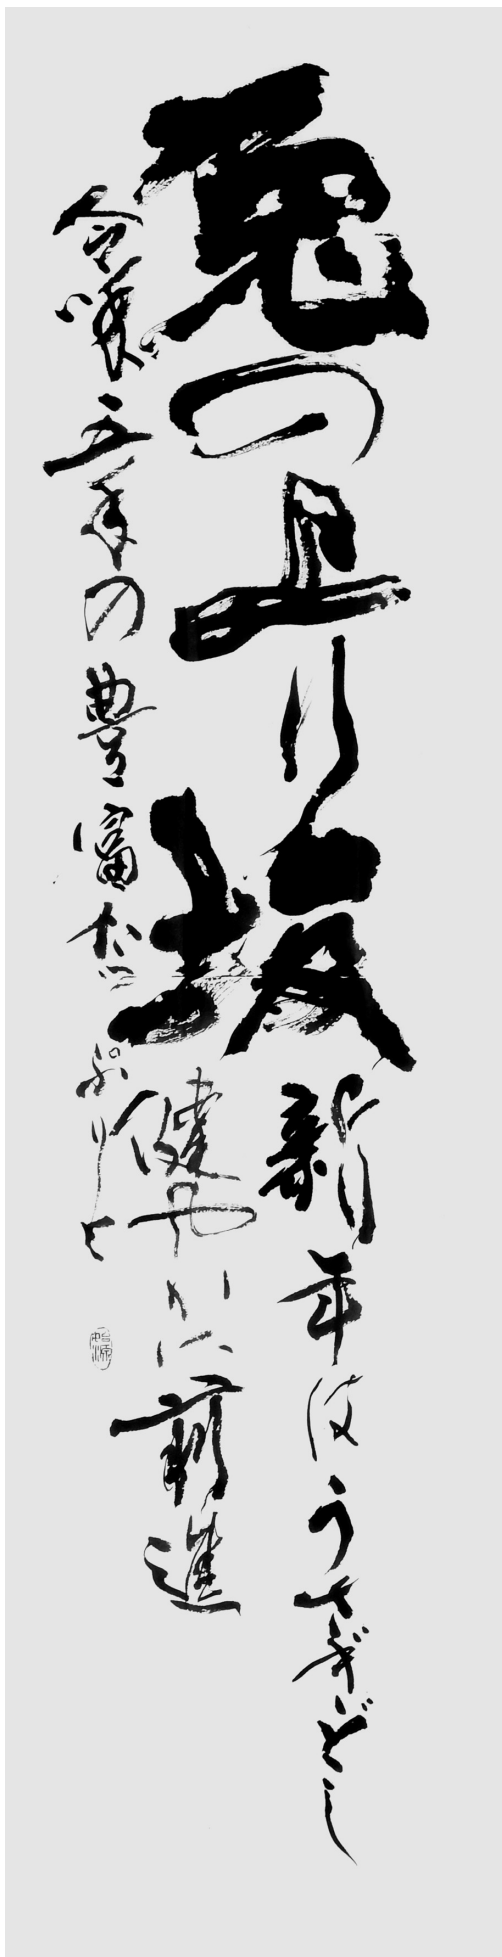 兎の上り坂
新年はうさぎどし
健やかに前進
令和五年の豊富たっぷりと